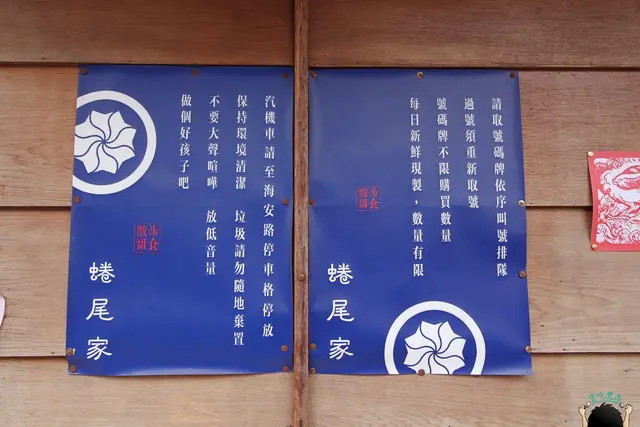 請取號碼牌依序叫號排隊
過號須重新取號
號碼牌不限購買數量
每日新鮮現製，數量有限
散步甜食
蜷尾家
汽機車請至海安路停車格停放
保持環境清潔 垃圾請勿隨地棄置
不要大聲喧嘩 放低音量
做個好孩子吧
散步甜食
蜷尾家